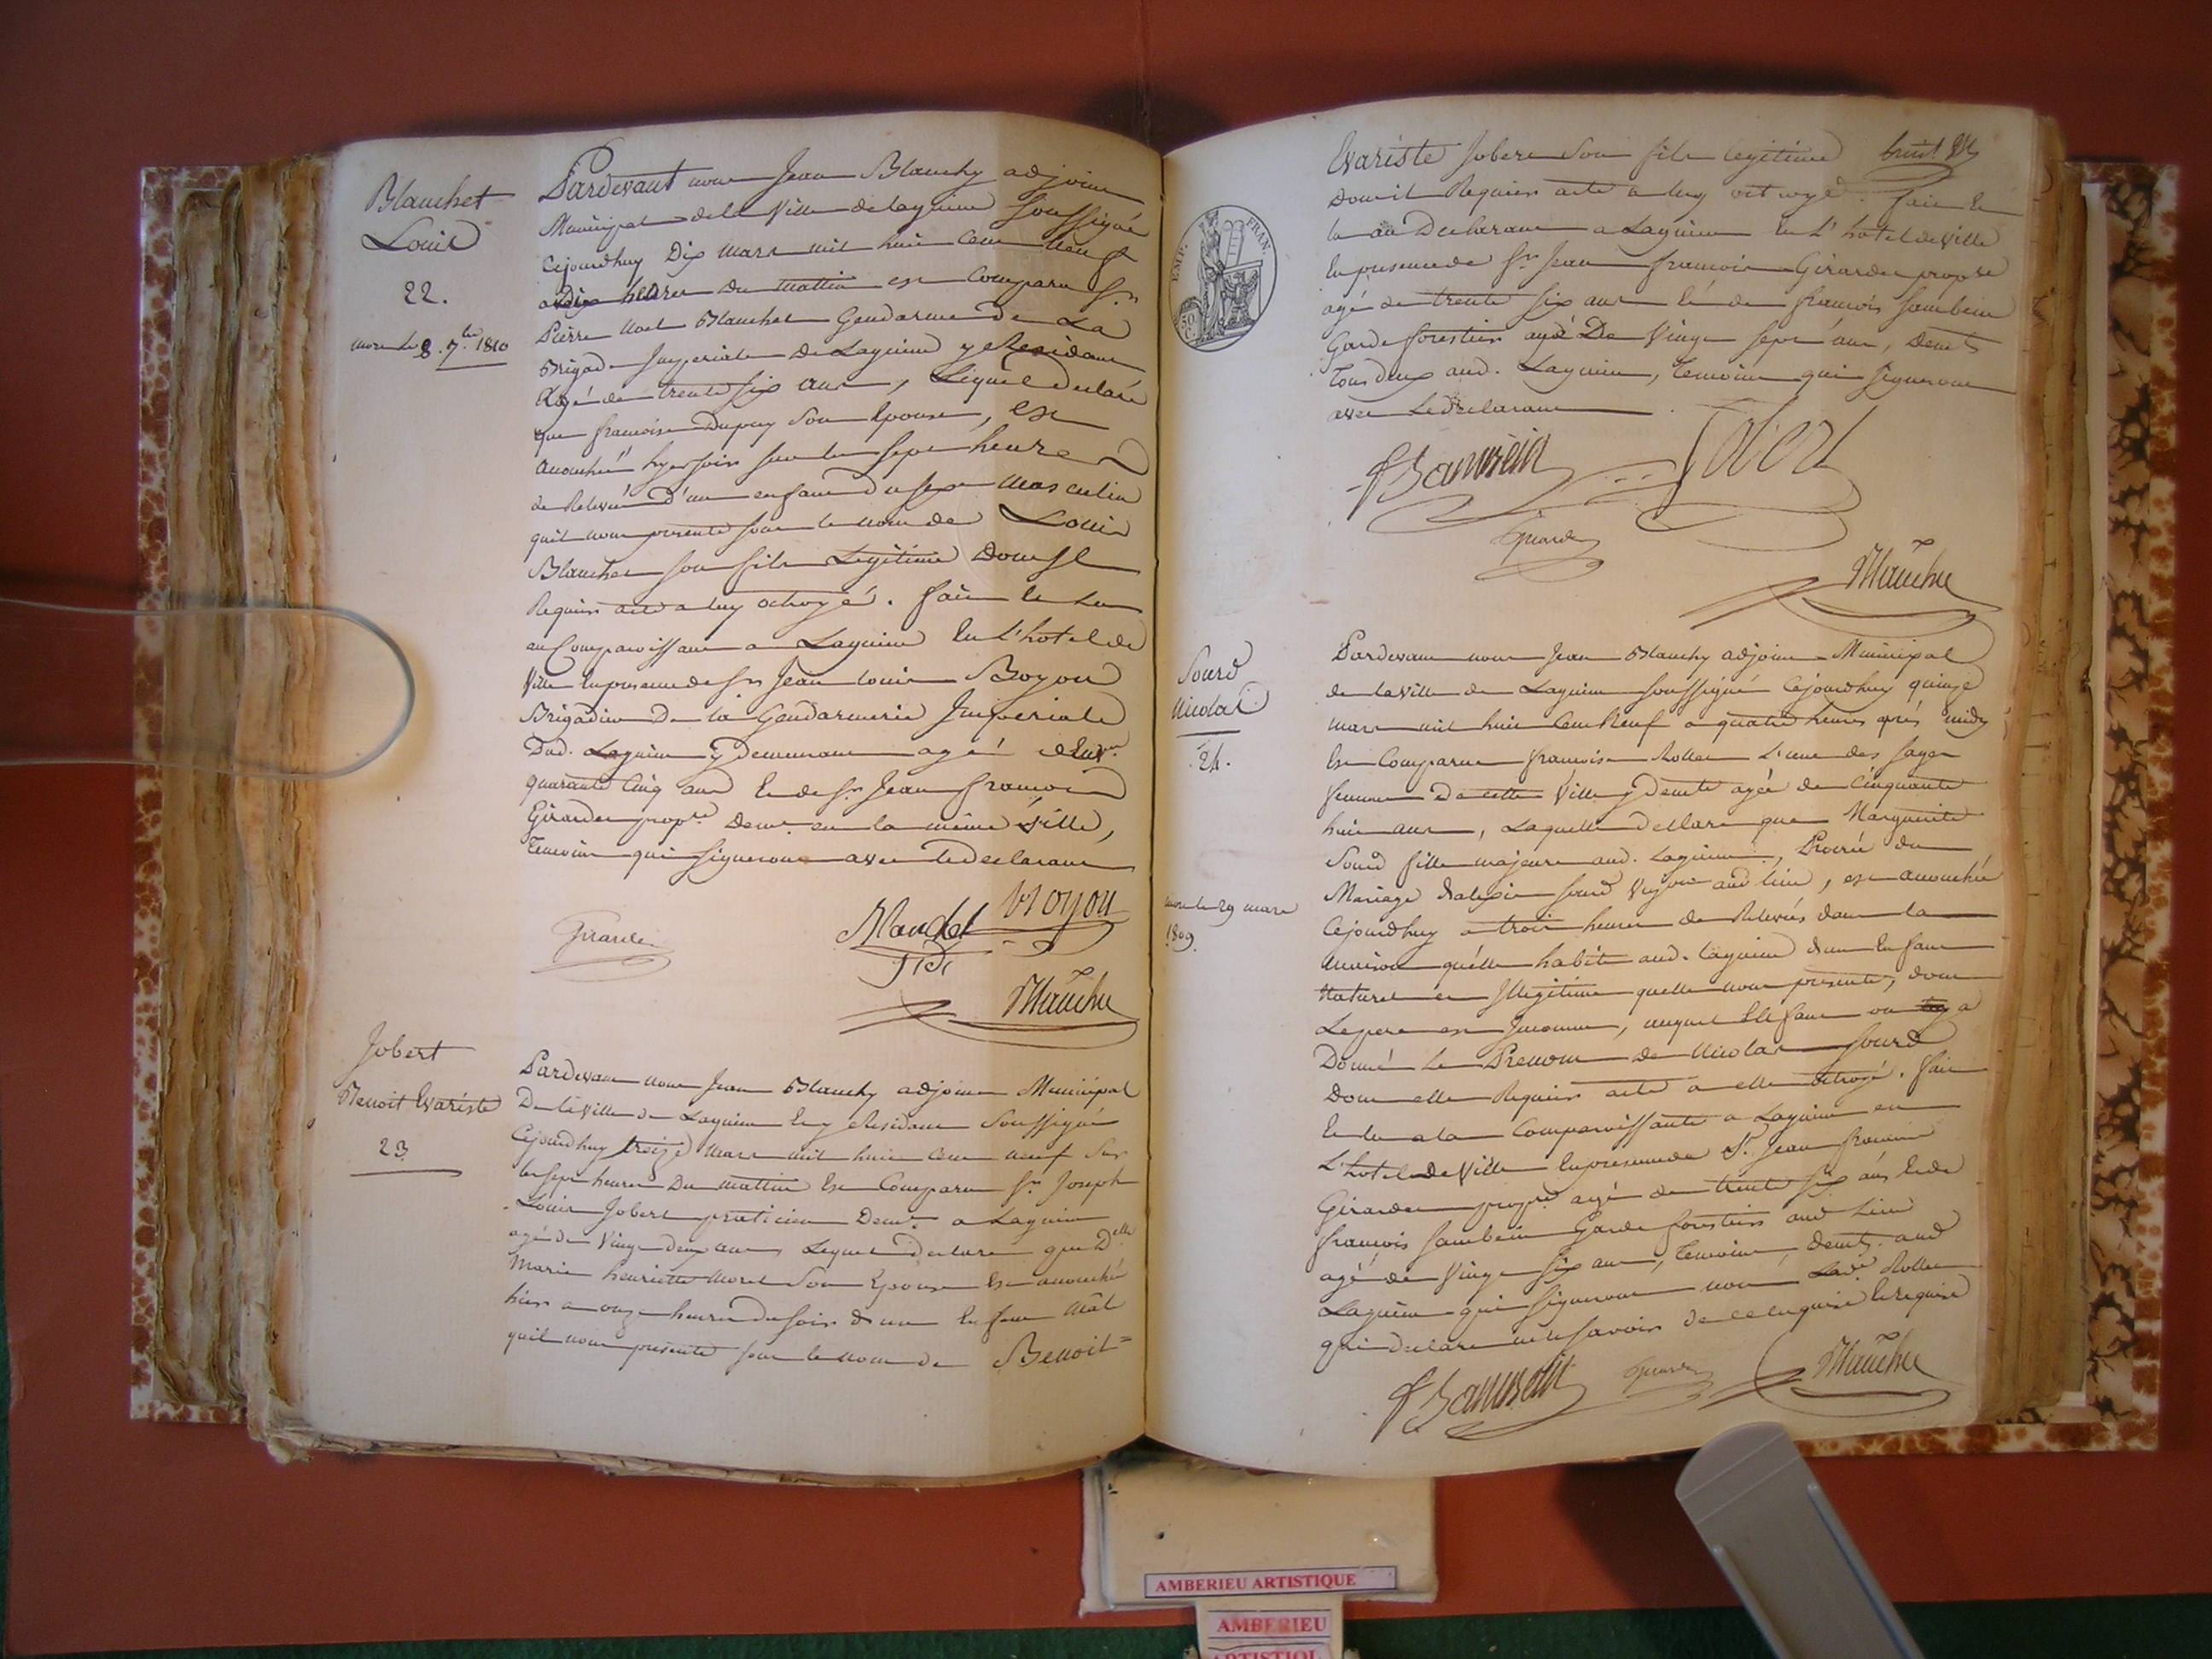 Blanchet
Louis
22.
mort le 8. 7.bre 1810
Pardevant nous Jean Blanchy adjoint
Municipal de la Ville de Lagnieu Soussigné
Cejourdhuy Dix mars mil huit cent neuf
a dix heures du mattin est Comparu Sr.
Pierre Noel Blanchet Gendarme de La
Brigade Imperiale De Lagnieu y Residant
agé de trente six ans, Lequel declare
que francoise Dupuy Son Epouse, est
accouchée hyer soir sur les sept heures
de Relevée D'un enfant du sexe Masculin
quil nous presente sous le nom de Louis
Blanchet son fils Legitime Dont Il
Requiert acte a luy octroyé. fait et lu
au Comparoissant a Lagnieu En L'hotel de
Ville En presence de Sr. Jean Louis Boyou
Brigadier De la Gendarmerie Imperiale
Dud. Lagnieu y demeurant agé d'Env.on
quarante Cinq ans Et de Sr. Jean francois
Girardet prop.re Dem.t en la même Ville,
Temoins qui signeront avec le declarant
Girardet
Blanchet
Boyou
Blanchy
Jobert
Benoit Evariste
23.
Pardevant nous Jean Blanchy adjoint Municipal
De la Ville de Lagnieu Et y Residant Soussigné
Cejourdhuy treize Mars mil huit Cent neuf Sur
les sept heures Du mattin Est Comparu Sr. Joseph
Louis Jobert praticien Dem.t a Lagnieu
agé de Vingt deux ans Lequel declare que D.elle
Marie henriette Morel Son Epouse Est accouchée
hier a onze heures du soir d'un Enfant Mâle
quil nous presente sous le nom de Benoit=
EMP. FRAN.
50
C.
Evariste Jobert Son fils legitime
Dont il Requiert acte a luy octroyé. fait et
lu au Declarant a Lagnieu En L'hotel de Ville
En presence de Sr. Jean francois Girardet prop.re
agé de trente six ans Et de francois Jambein
Garde forestier agé De Vingt sept ans, Dem.ts
Tous deux aud. Lagnieu, Temoins qui signeront
avec Le declarant
Jobert
Girardet
Blanchy
Sourd
Nicolas
24.
mort le 29 mars
1809.
Pardevant nous Jean Blanchy adjoint Municipal
de la Ville de Lagnieu soussigné Cejourdhuy quinze
mars mil huit Cent Neuf a quatre heures après midy
Est Comparue francoise Rollet L'une des sages
femmes De cette Ville y Dem.te agée de Cinquante
huit ans, Laquelle declare que Marguerite
Sourd fille majeure aud. Lagnieu, Procrée du
Mariage d'alexis Sourd aud lieu, est accouchée
Cejourdhuy a trois heures de Relevée dans la
Maison quelle habite aud. Lagnieu d'un Enfant
Naturel et Illegitime quelle nous presente, dont
Le pere est Inconnu, auquel Elle a
Donné Le Prenom de Nicolas Sourd
Dont elle Requiert acte a elle octroyé. fait
Et lu a la Comparoissante a Lagnieu en
L'hotel De Ville En presence de Sr. Jean francois
Girardet prop.re agé de trente six ans Et de
francois Jambein Garde forestier aud Lieu
agé de Vingt six ans, Temoins, Dem.ts. aud
Lagnieu qui signeront non Lad.e Rollet
qui declare ne le savoir de ce enquise Et requise
Girardet
Blanchy
AMBERIEU ARTISTIQUE
AMBERIEU